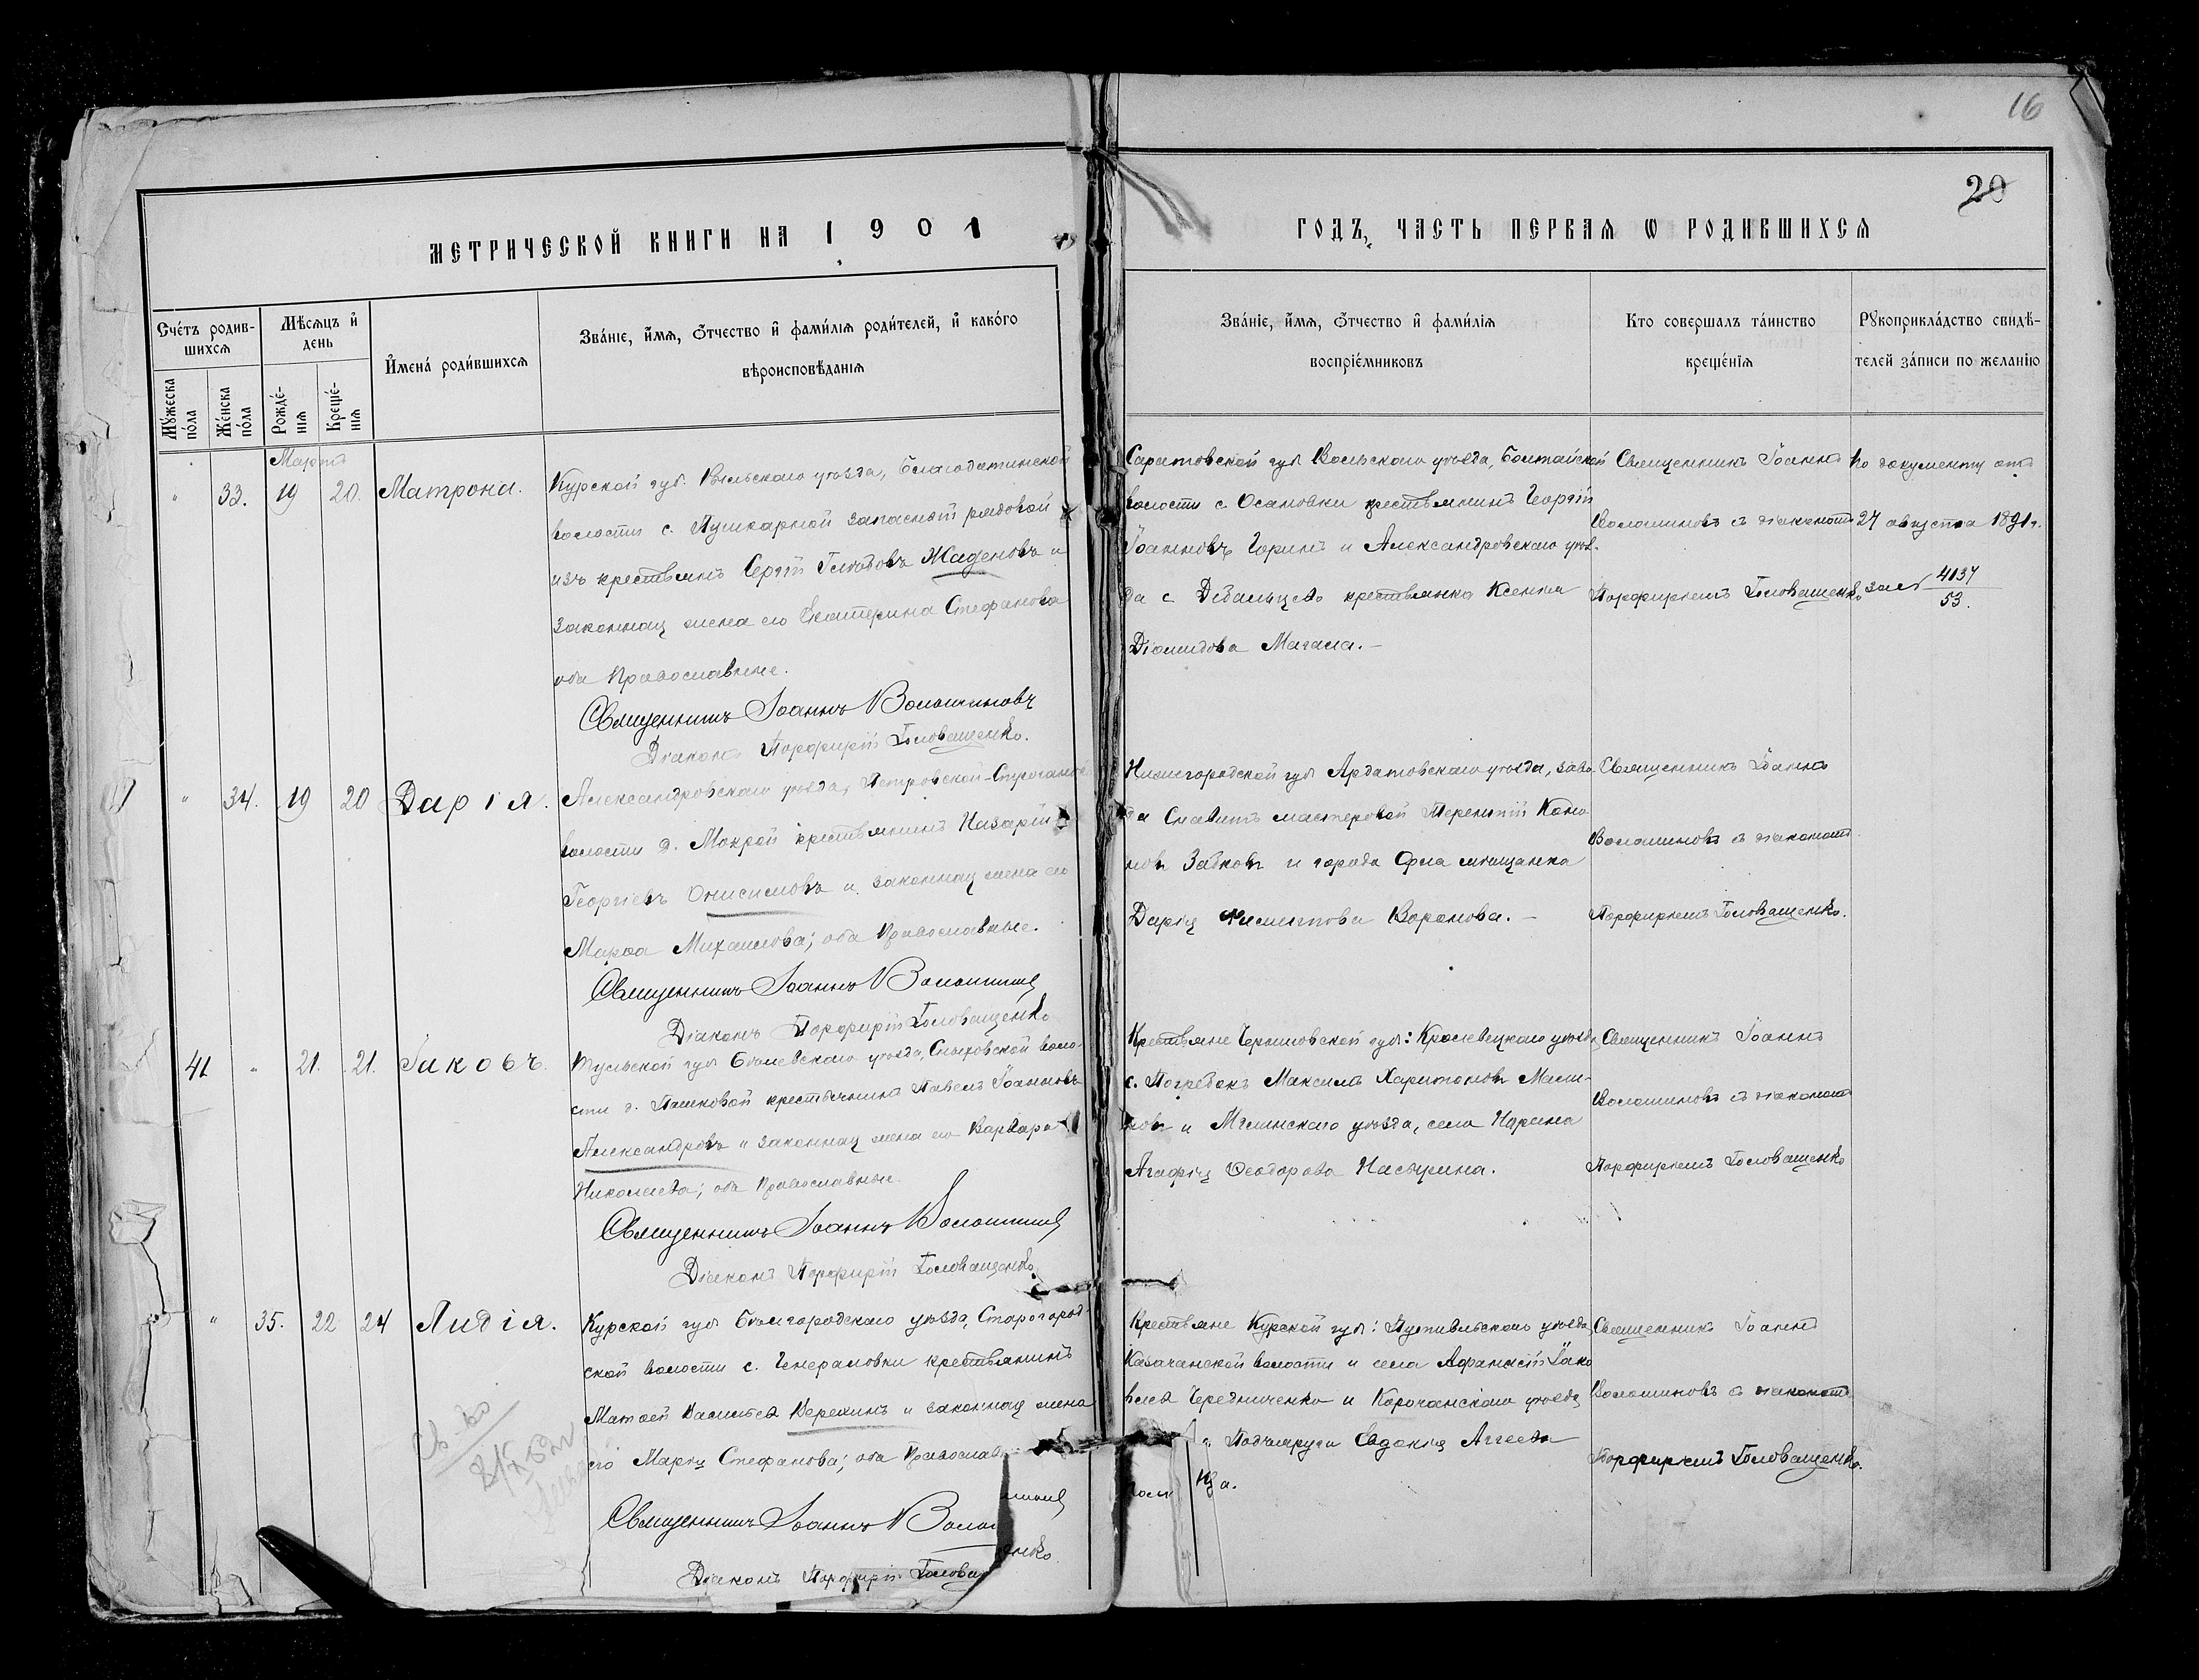 16
20
МЕТРИЧЕСКОЙ КНИГИ НА 1901
ГОДЪ, ЧАСТЬ ПЕРВАЯ Ѡ РОДИВШИХСЯ
Счетъ родив-
шихся
Мѣсяцъ и
день
Имена родившихся
Званіе, имя, отчество и фамилія родителей, и какого
вѣроисповѣданія
Мужеска
пола
Женска
пола
Рожде-
нія
Креще-
нія
Званіе, имя, отчество и фамилія
воспріемниковъ
Кто совершалъ таинство
крещенія
Рукоприкладство свидѣ-
телей записи по желанію
Мартъ
" 33. 19 20. Матрона.
Курской губ. Рыльскаго уѣзда, Благодатинской
волости с. Пушкарной запасный рядовой
изъ крестьянъ Сергій Глѣбовъ Жаденовъ и
законная жена его Екатерина Стефанова
оба Православные.
Священникъ Іоаннъ Волошиновъ
Діаконъ Порфирій Головащенко.
Саратовской губ Вольскаго уѣзда, Болтайской
волости с. Осановки крестьянинъ Георгій
Іоанновъ Горинъ и Александровскаго уѣз-
да с Дебальцево крестьянка Ксенія
Діомидова Магала.-
Священникъ Іоаннъ
Волошиновъ с діакономъ
Порфиріемъ Головащенко
По документу отъ
27 августа 1891 г.
за № 4137
53.
" 34. 19 20 Дарія.
Александровскаго уѣзда, Петровской-Строганов
волости д. Мокрой крестьянинъ Назарій
Георгіевъ Онисимовъ и законная жена его
Марѳа Михаилова; оба Православные.
Священникъ Іоаннъ Волошинов
Діаконъ Порфирій Головащенко
Нижегородской губ Ардатовскаго уѣзда, заво
да Снаветъ мастеровой Терентій Коно
новъ Забковъ и города Орла мѣщанка
Дарія Филиппова Воронова. -
Священникъ Іоаннъ
Волошиновъ с діакономъ
Порфиріемъ Головащенко.
41 " 21. 21. Іаковъ.
Тульской губ Бѣлевскаго уѣзда, Сныховской воло-
сти д. Пашковой крестьянинъ Павелъ Іоанновъ
Александровъ и законная жена его Варвара
Николаева; оба Православные.
Священникъ Іоаннъ Волошинов
Діаконъ Порфирій Головащенко
Крестьяне Черниговской губ: Кролевецкаго уѣзда
с. Погребокъ Максимъ Харитоновъ Мали-
новъ и Мглинскаго уѣзда, села Нарина
Агафія Ѳеодорова Насырина.
Священникъ Іоаннъ
Волошиновъ с діакономъ
Порфиріемъ Головащенко
" 35. 22 24 Лидія.
Курской губ Бѣлгородскаго уѣзда, Старогород-
ской волости с. Генераловки крестьянинъ
Матѳей Васильевъ Верехинъ и законная жена
его Марія Стефанова; оба Православ
Священникъ Іоаннъ Волошинов
Діаконъ Порфирій Головащенко
Крестьяне Курской губ: Путивльскаго уѣзда,
Казачанской волости и села Аѳанасій Іако
влевъ Чередниченко и Корочанскаго уѣзда
с. Подъяруги Евдокія Аггеева
Священникъ Іоаннъ
Волошиновъ с діакономъ
Порфиріемъ Головащенко.